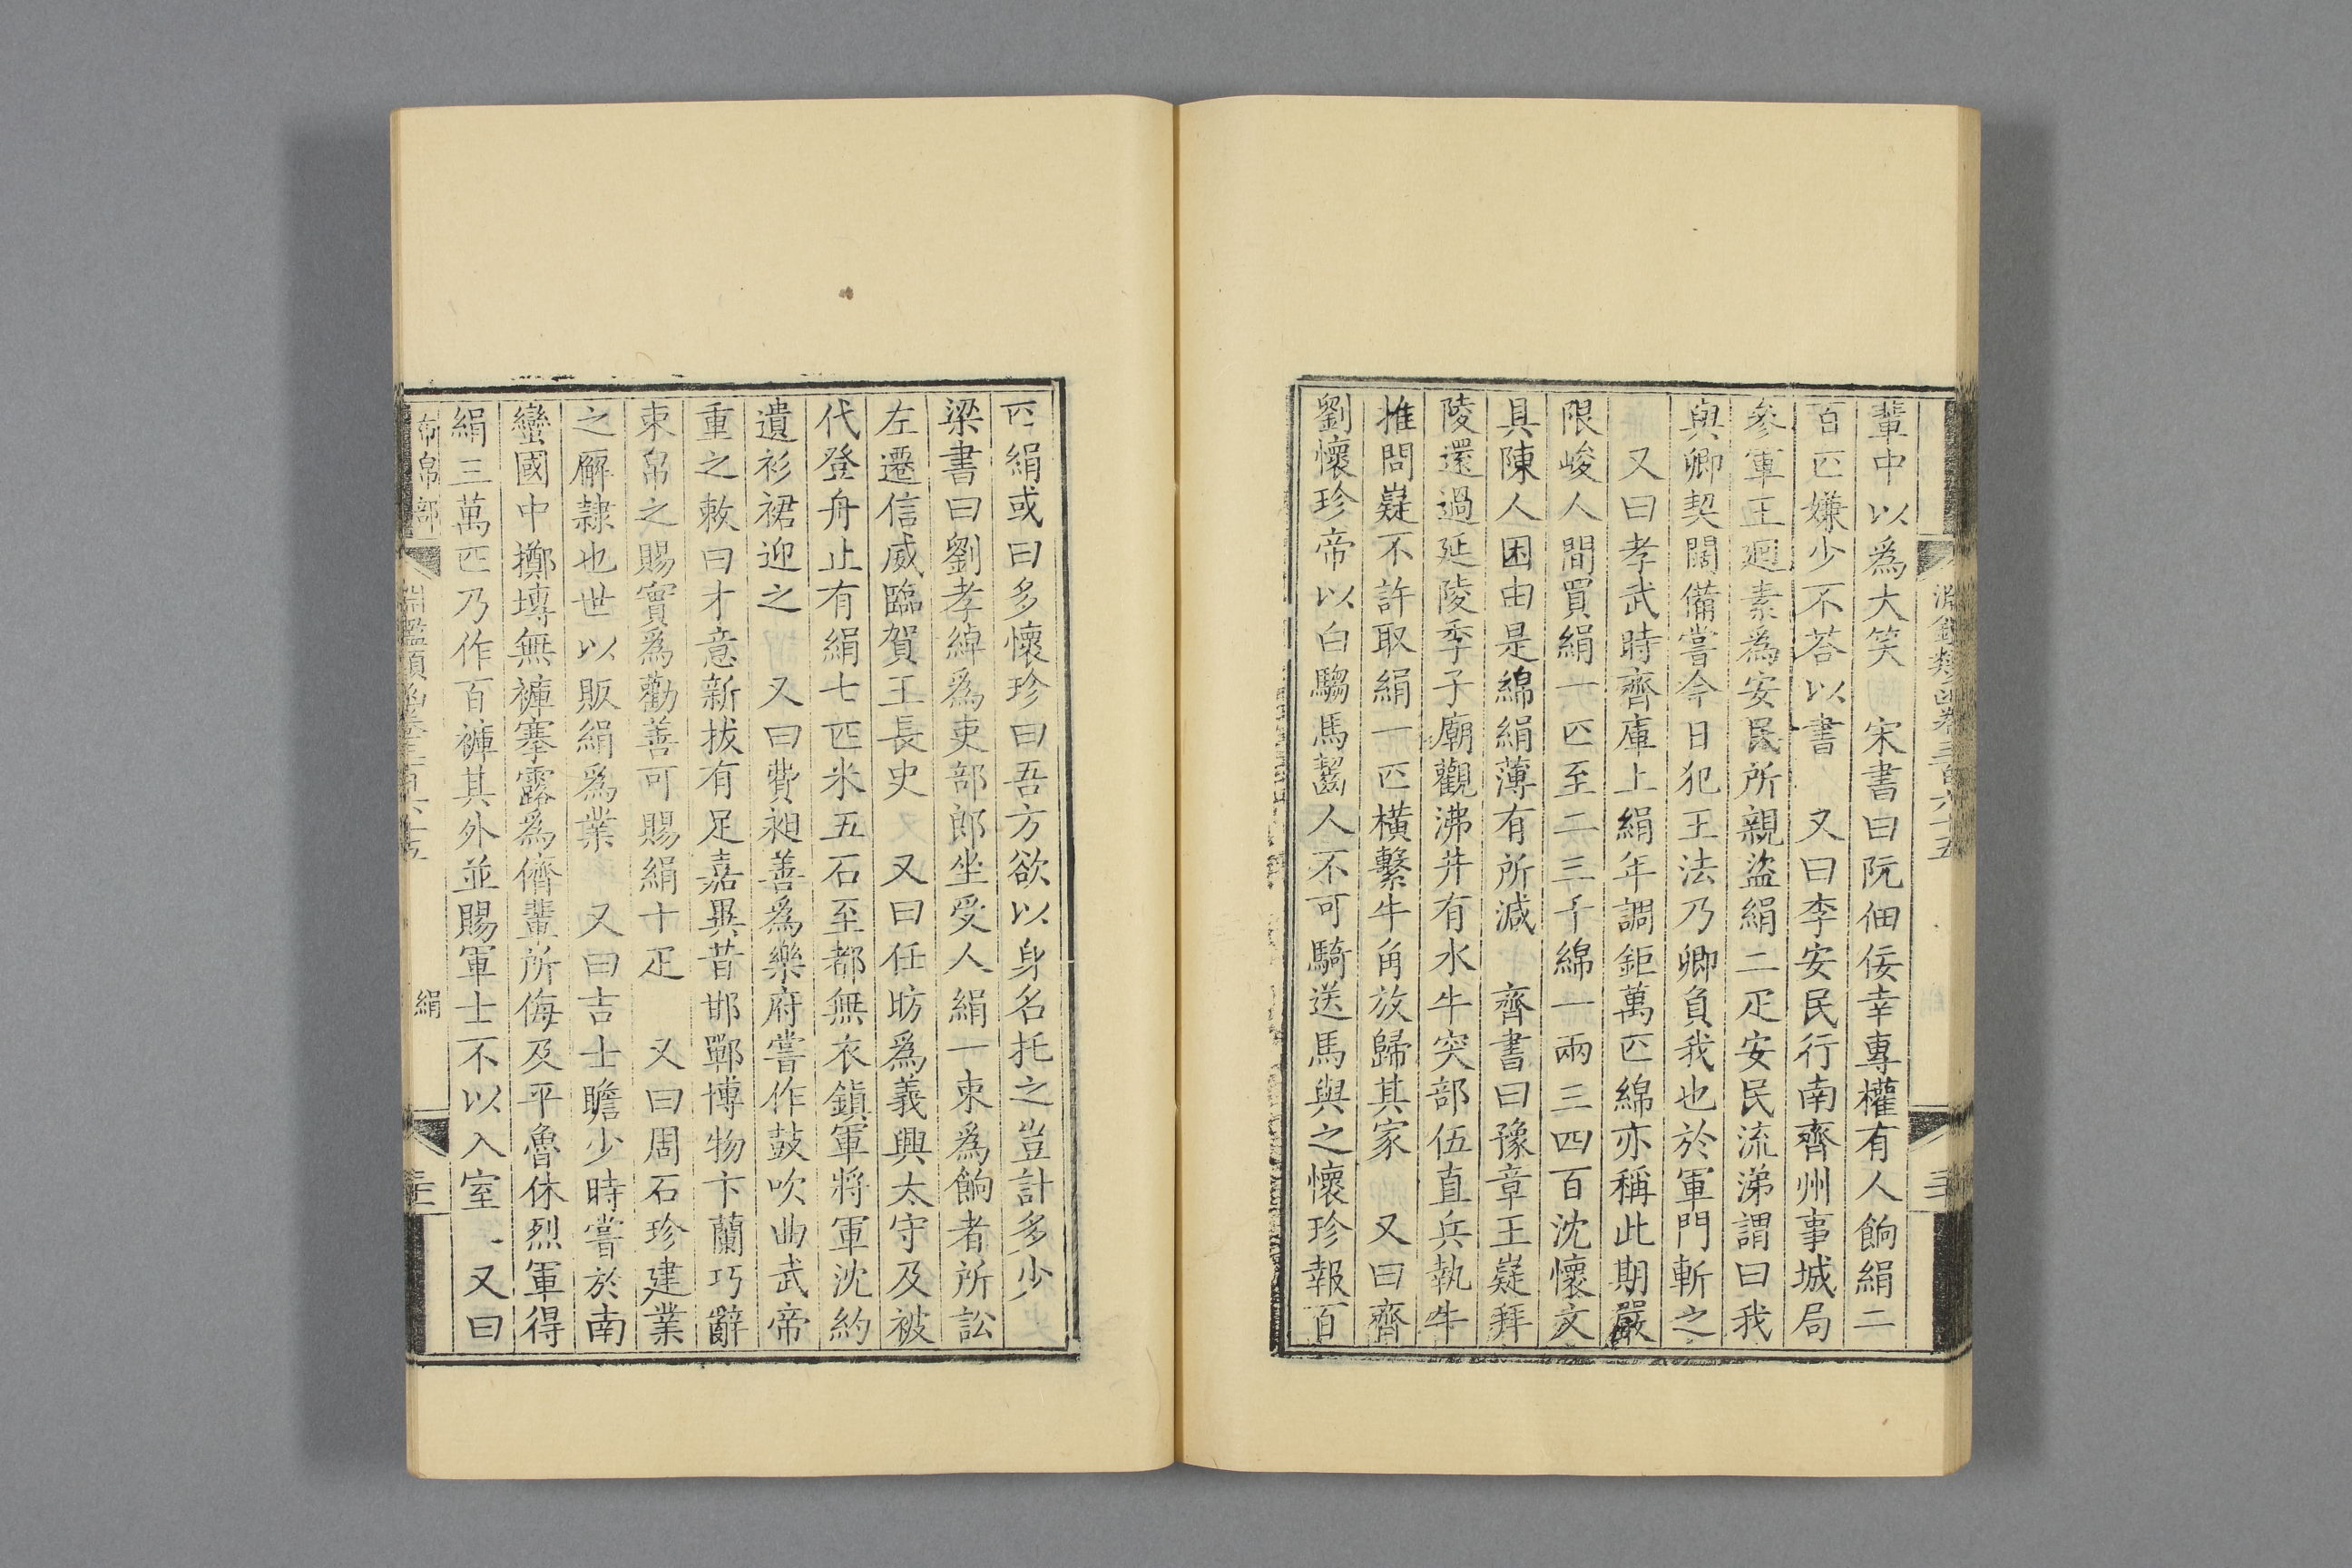 淵鑑類函卷三百六十五
輩中以爲大笑　宋書曰阮佃佞幸專權有人餉絹二
百匹嫌少不荅以書　又曰李安民行南齊州事城局
參軍王迥素爲安民所親盜絹二疋安民流涕謂曰我
與卿契闊備嘗今日犯王法乃卿負我也於軍門斬之
又曰孝武時齊庫上絹年調鉅萬匹綿亦稱此期嚴
限峻人間買絹一匹至二三千綿一兩三四百沈懷文
具陳人困由是綿絹薄有所減　齊書曰豫章王嶷拜
陵還過延陵季子廟觀沸井有水牛突部伍直兵執牛
推問嶷不許取絹一匹橫繫牛角放歸其家　又曰齊
劉懷珍帝以白騶馬齧人不可騎送馬與之懷珍報百
匹絹或曰多懷珍曰吾方欲以身名托之豈計多少
梁書曰劉孝綽爲吏部郎坐受人絹一束爲餉者所訟
左遷信威臨賀王長史　又曰任昉爲義興太守及被
代登舟止有絹七匹米五石至都無衣鎮軍將軍沈約
遺衫裙迎之　又曰費昶善爲樂府嘗作鼓吹曲武帝
重之敕曰才意新拔有足嘉異昔邯鄲博物卞蘭巧辭
束帛之賜實爲勸善可賜絹十疋　又曰周石珍建業
之廝隸也世以販絹爲業　又曰吉士瞻少時嘗於南
蠻國中擲塼無褌搴露爲儕輩所侮及平魯休烈軍得
絹三萬匹乃作百褌其外並賜軍士不以入室　又曰
布帛部　淵鑑類函卷三百六十五　絹